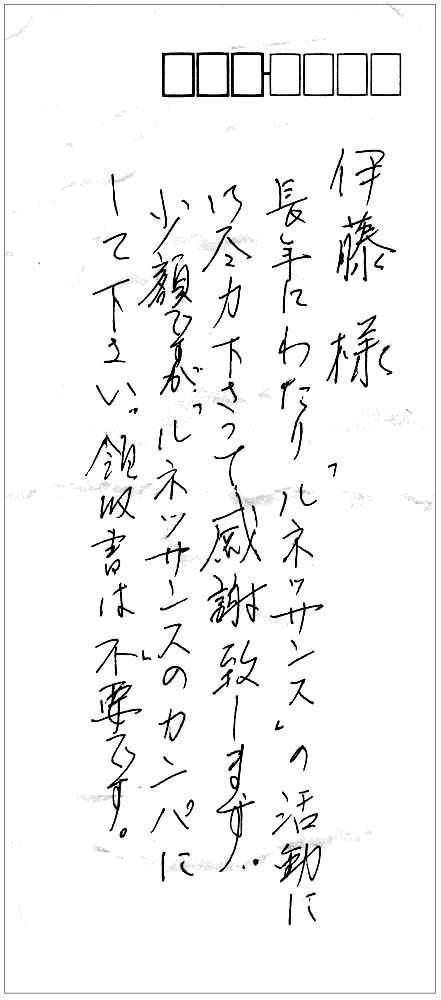 伊藤様
長年にわたり「ルネッサンス」の活動に
に尽力下さって感謝致します。
少額ですが「ルネッサンスのカンパに
して下さい。領収書は不要です。